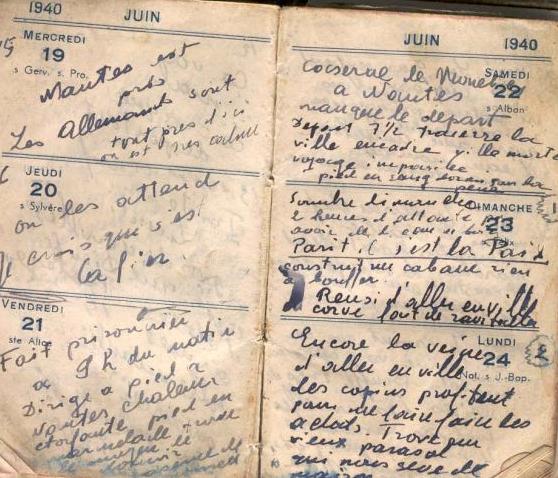 1940 JUIN
MERCREDI
19
s Gerv. s. Pro.
Nantes est
pris
Les Allemands sont
tout près d'ici
on est très calme
JEUDI
20
s Sylvère
on les attend
Je crois que s'est
la fin.
VENDREDI
21
ste Alice
Fait prisonnier
a 9h du matin
Dirigé a pied a
Nantes chaleur
étoufante pied en
marmelade
JUIN 1940
SAMEDI
22
s Alban
caserne de
a Nantes
manque le départ
Depart 7½ traverse la
ville encadre ville morte
voyage impossible
pied en sang dormi sur la
DIMANCHE
23
Sombre dimanche
heures d'attente
avoir de l'eau
Parit. (s'est la Paix
construit une cabane rien
a bouffer.
Reussi d'aller en ville
en corvé pour le ravitaill
LUNDI
24
Nat. s J.-Bap.
Encore la veine
d'aller en ville
des copins profitent
pour me faire faire les
achats. Trouve un
vieux parasol
qui nous sere de
maison